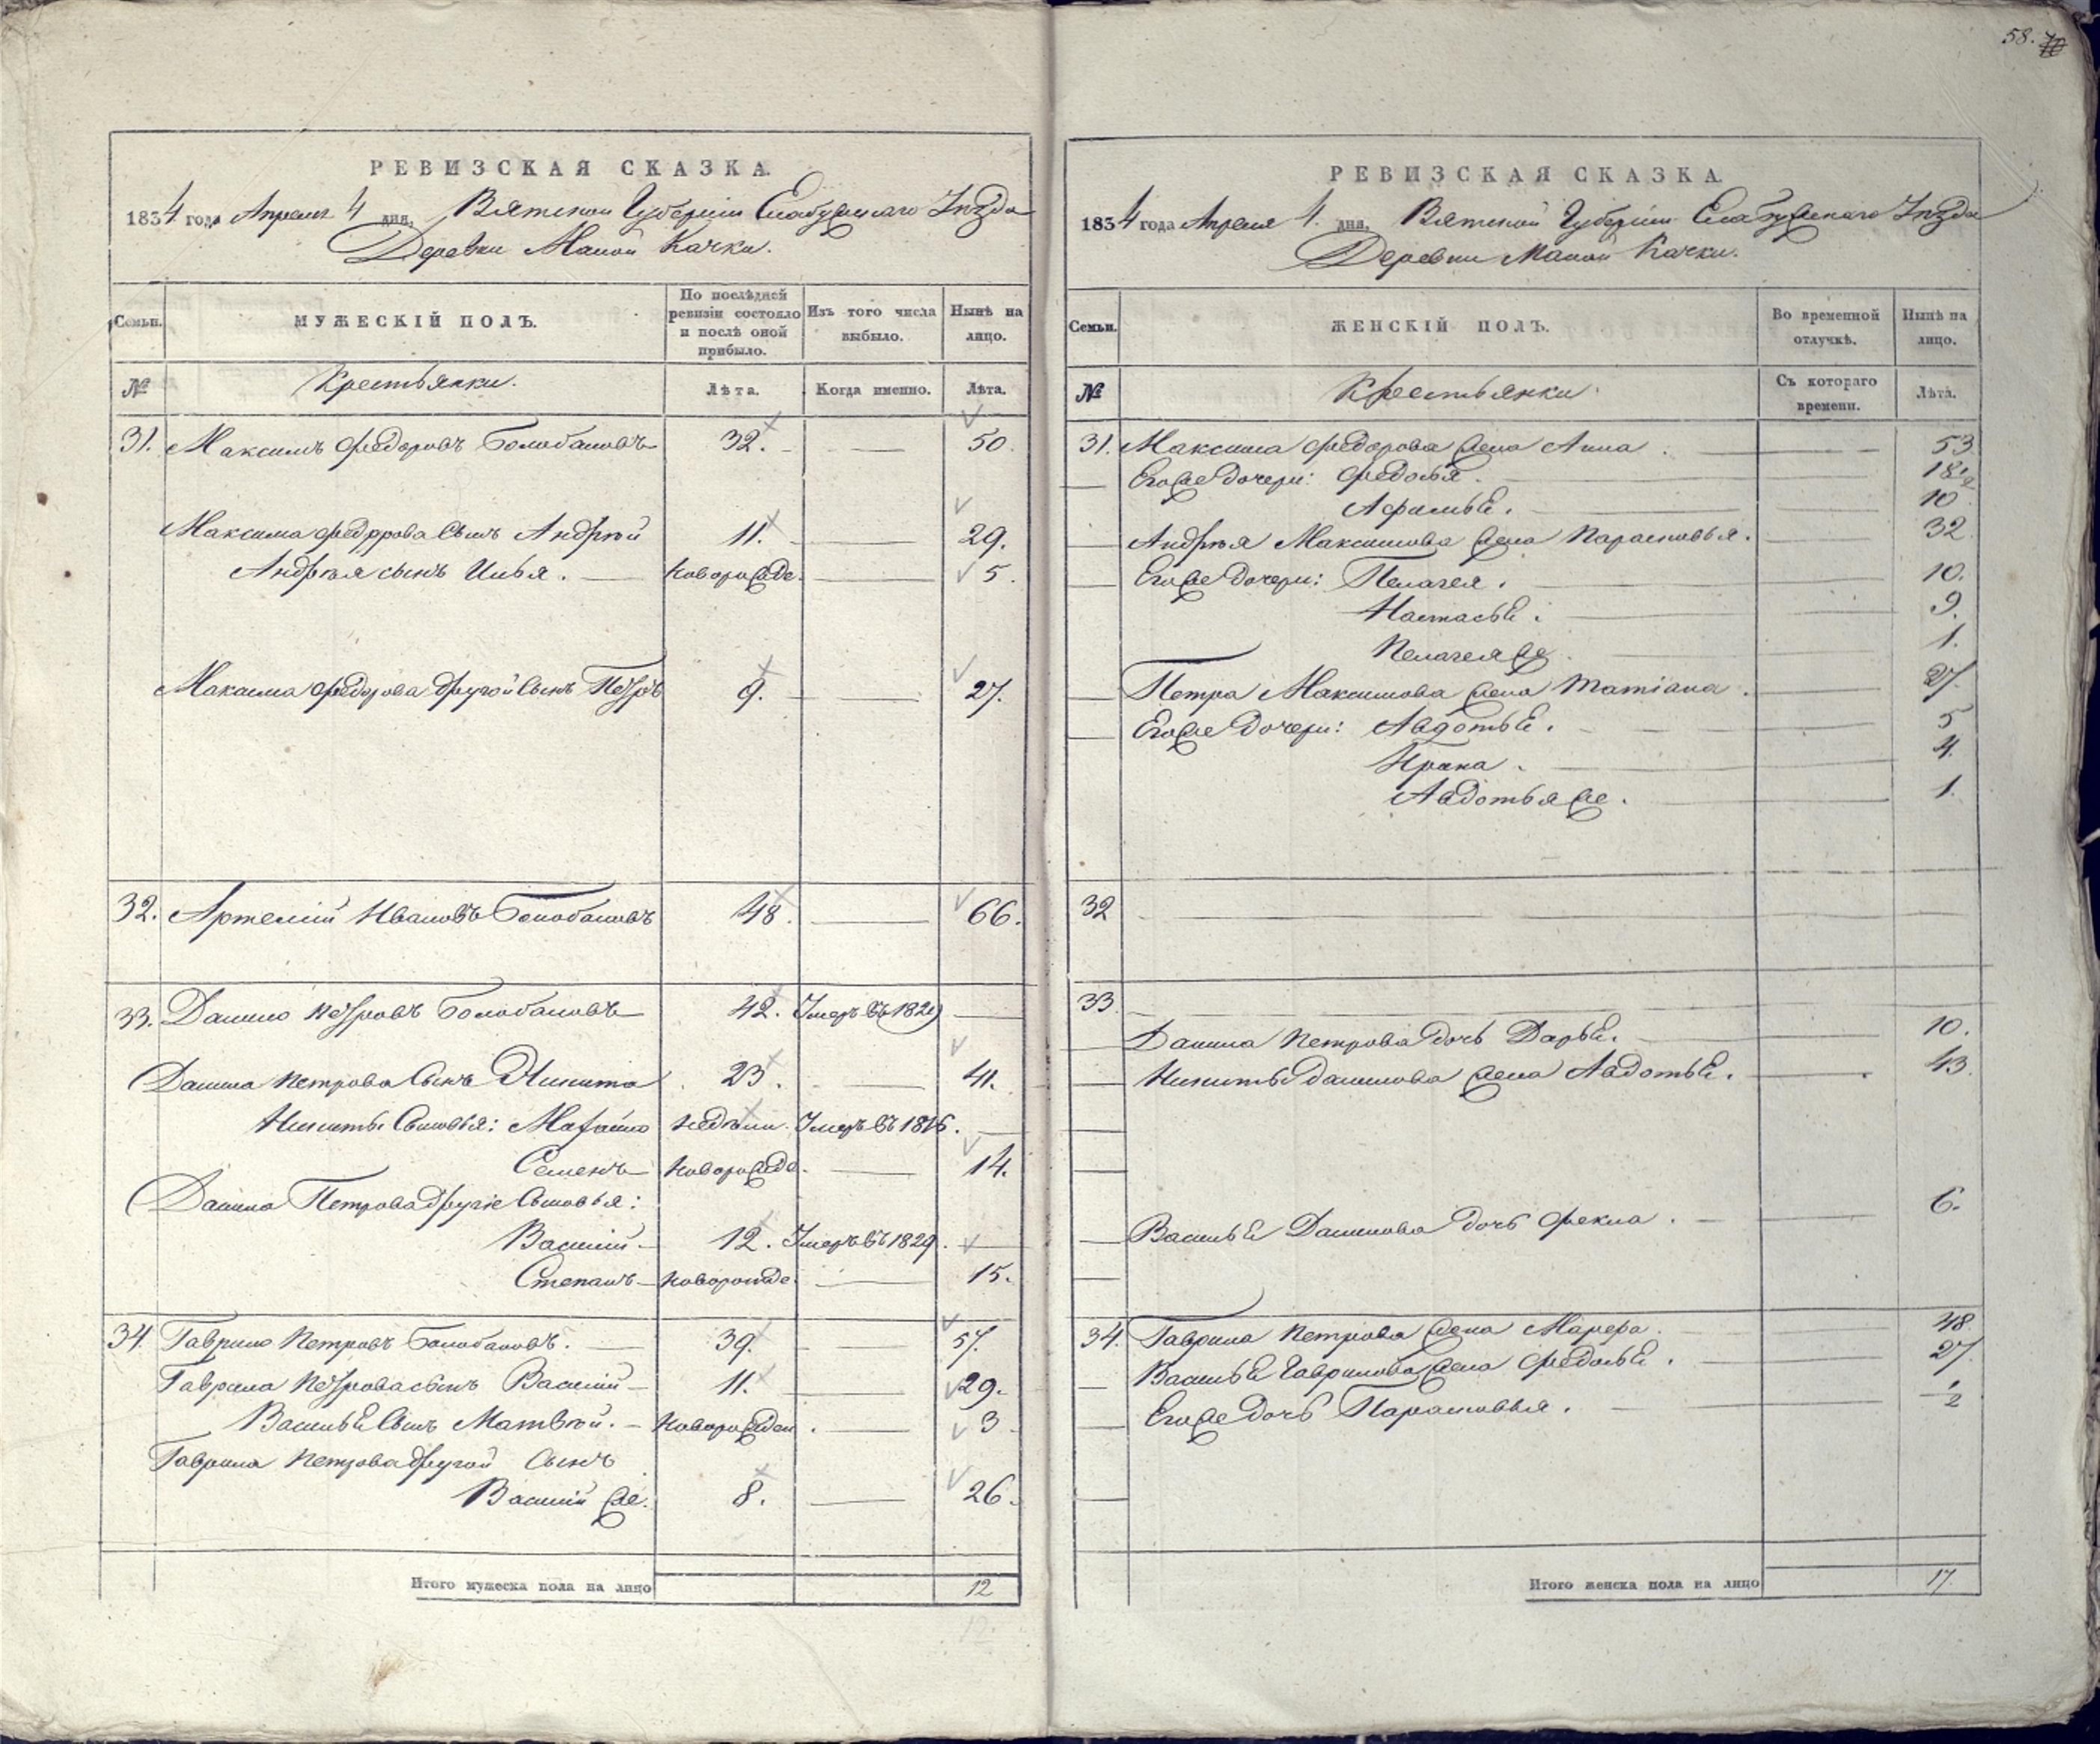 58.
РЕВИЗСКАЯ СКАЗКА.
1834 года Апреля 4 дня, Вятской Губерніи Елабужскаго Уѣзда
Деревни Малой Качки.
Семьи.
МУЖЕСКІЙ ПОЛЪ.
По послѣдней ревизіи состояло и послѣ оной прибыло.
Изъ того числа выбыло.
Нынѣ на лицо.
№
Крестьянки.
Лѣта.
Когда именно.
Лѣта.
31. Максимъ Федоровъ Болобановъ 32. 50.
Максима Федорова Сынъ Андрѣй 11. 29.
Андрѣя сынъ Илья. новорожде. 5.
Максима Федорова другой Сынъ Петръ 9. 27.
32. Артемій Ивановъ Болобановъ 48. 66.
33. Данило Петровъ Болобановъ 42. Умеръ въ 1829
Данила Петрова Сынъ Никита 23. 41.
Никиты Сыновья: Мафѣйло недѣли. Умеръ въ 1816.
Семенъ новорожде. 14.
Данила Петрова другіе Сыновья:
Василій 12. Умеръ въ 1829.
Степанъ новорожде. 15.
34. Гаврило Петровъ Болобановъ. 39. 57.
Гаврила Петрова сынъ Василій 11. 29.
Василья Сынъ Матвѣй. новорожден. 3
Гаврила Петрова другой Сынъ
Василій же. 8. 26.
Итого мужеска пола на лицо 12
РЕВИЗСКАЯ СКАЗКА.
1834 года Апреля 4. дня, Вятской Губерніи Елабужскаго Уѣзда
Деревни Малой Качки.
Семьи.
ЖЕНСКІЙ ПОЛЪ.
Во временной отлучкѣ.
Нынѣ на лицо.
№
Крестьянки
Съ котораго времени.
Лѣта.
31. Максима Федорова жена Анна. 53
Его же дочери: Федосья. 18 1/2
Афимья. 10
Андрѣя Максимова жена Парасковья. 32
Его же дочери: Пелагея. 10.
Настасья. 9.
Пелагея же. 1.
Петра Максимова жена Татіана. 27.
Его же дочери: Авдотья. 5
Ирина. 4.
Авдотья же. 1.
32
33
Данила Петрова дочь Дарья. 10.
Никиты Данилова жена Авдотья. 43.
Василья Данилова дочь Фекла. 6.
34. Гаврила Петрова жена Марфа. 48.
Василья Гаврилова жена Федосья. 27.
Его же дочь Парасковья. 1/2
Итого женска пола на лицо 17.